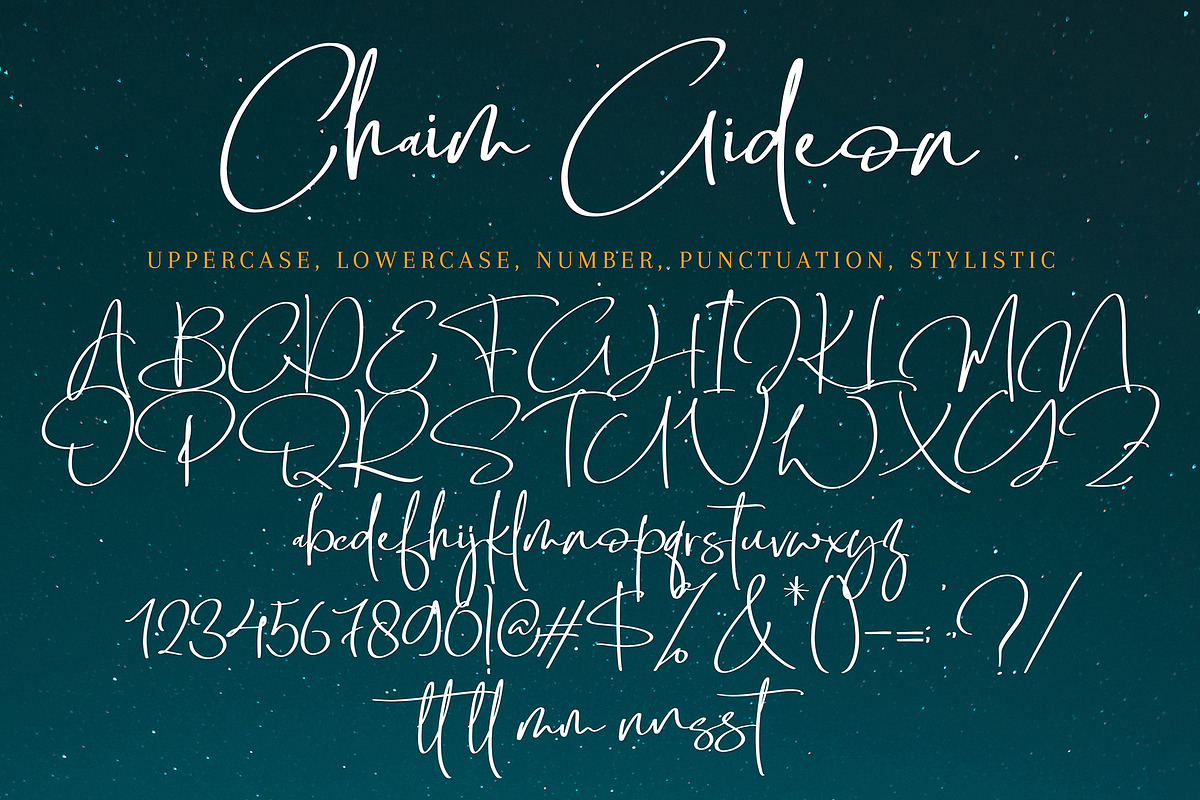 Chaim Gideon
UPPERCASE, LOWERCASE, NUMBER, PUNCTUATION, STYLISTIC
ABCDEFGHIJKLMN
OPQRSTUVWXYZ
abcdefhijklmnopqrstuvwxyz
1234567890!@#$%&*()-=;:?/
tt ll mm nn ss t